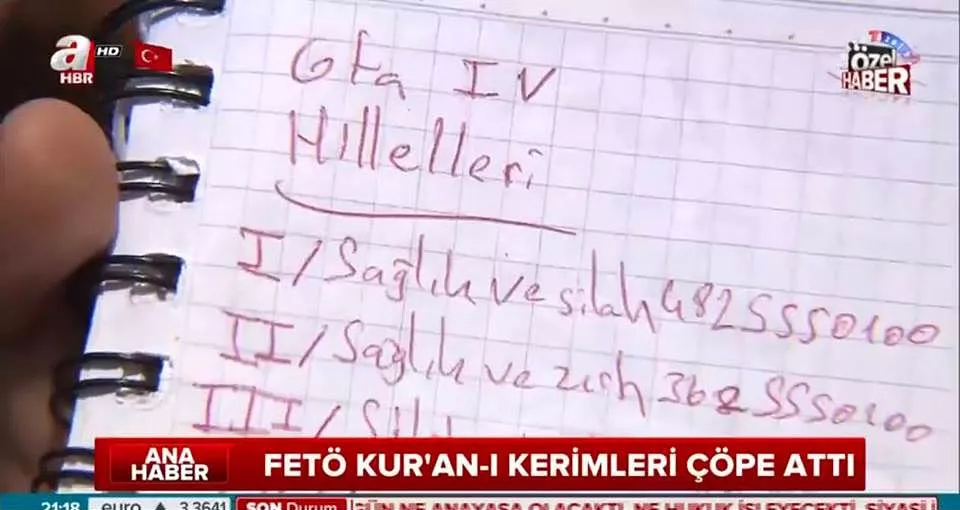 a HD
HBR
Özel
HABER
Gta IV
Hıllelleri
I/Sağlık ve silah 4825550100
II/Sağlık ve zırh 3625550100
III/
ANA
HABER
FETÖ KUR'AN-I KERİMLERİ ÇÖPE ATTI
21:18 euro ▲ 3,3641 SON Durum GÜN NE ANAYASA OLACAKTI, NE HUKUK İŞLEYECEKTİ, SİYASİ